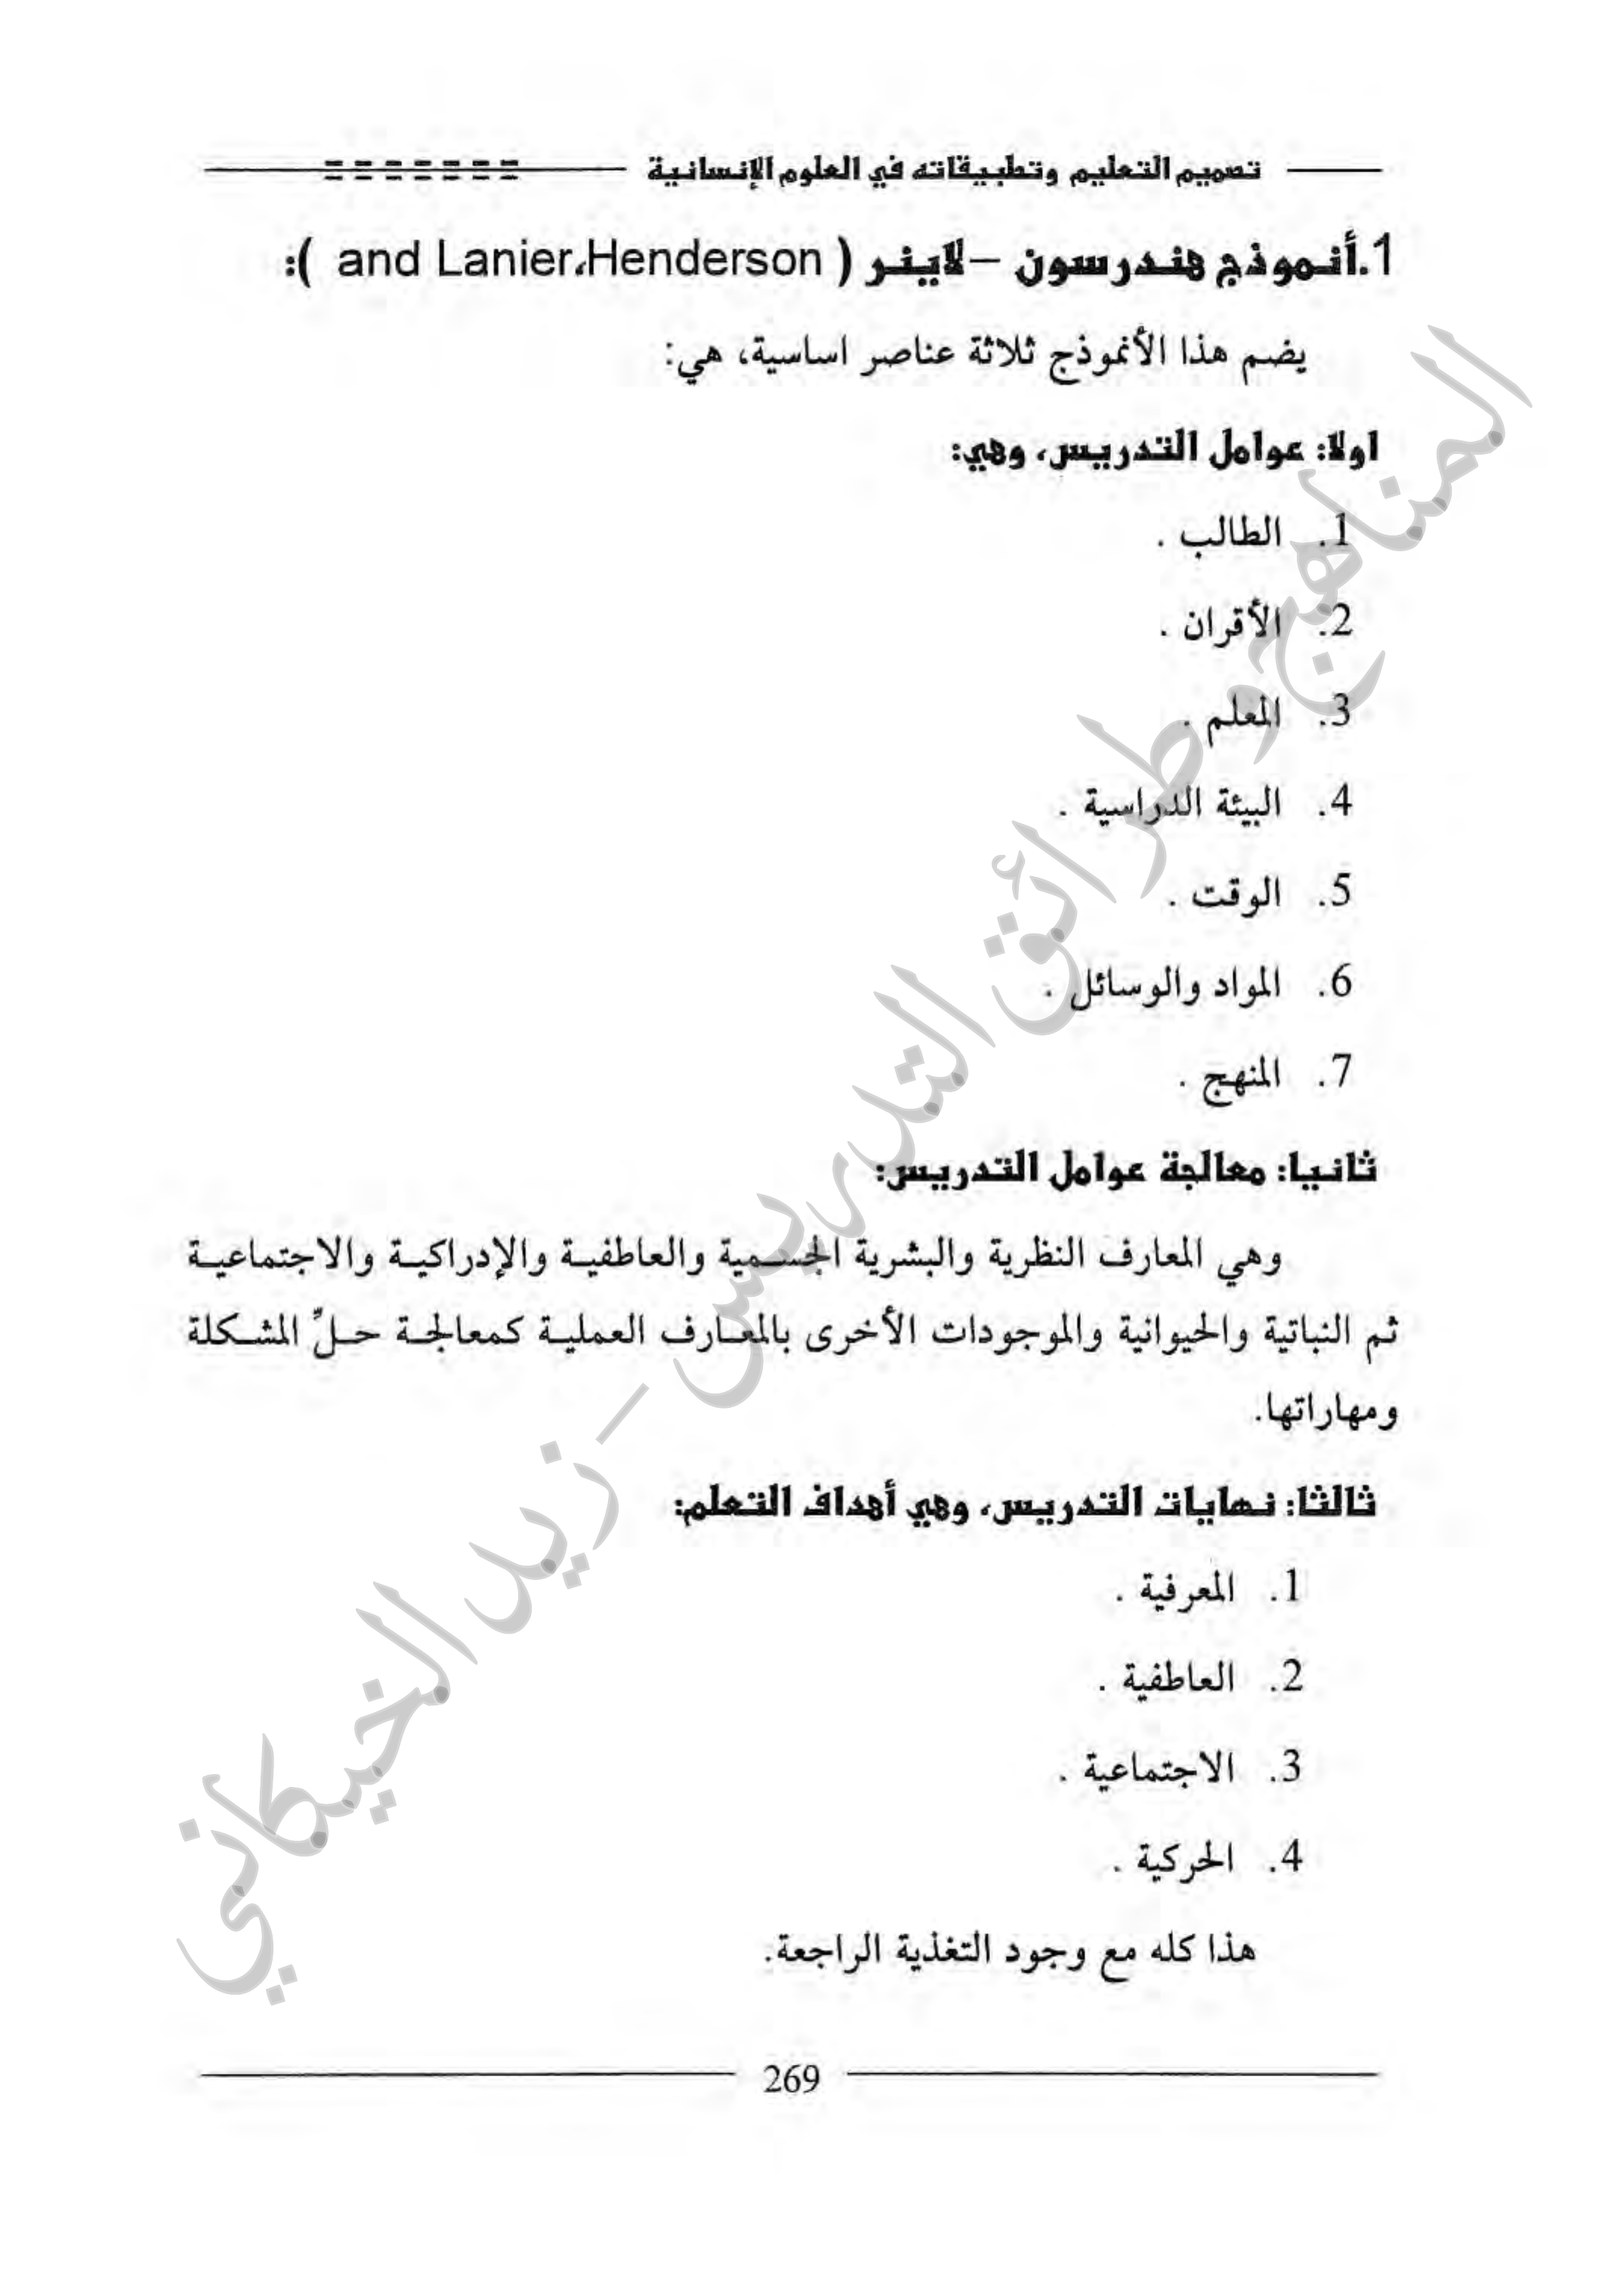 تصميم التعليم وتطبيقاته في العلوم الإنسانية
1.أنموذج هندرسون – لاينر ( and Lanier،Henderson ):
يضم هذا الأنموذج ثلاثة عناصر اساسية، هي:
اولا: عوامل التدريس، وهي:
1. الطالب .
2. الأقران .
3. المعلم .
4. البيئة الدراسية .
5. الوقت .
6. المواد والوسائل .
7. المنهج .
ثانيا: معالجة عوامل التدريس:
وهي المعارف النظرية والبشرية الجسمية والعاطفية والإدراكية والاجتماعية
ثم النباتية والحيوانية والموجودات الأخرى بالمعارف العملية كمعالجة حلِّ المشكلة
ومهاراتها.
ثالثا: نهايات التدريس، وهي أهداف التعلم:
1. المعرفية .
2. العاطفية .
3. الاجتماعية .
4. الحركية .
هذا كله مع وجود التغذية الراجعة.
269
المناهج وطرائق التدريس – زيد الخيكاني